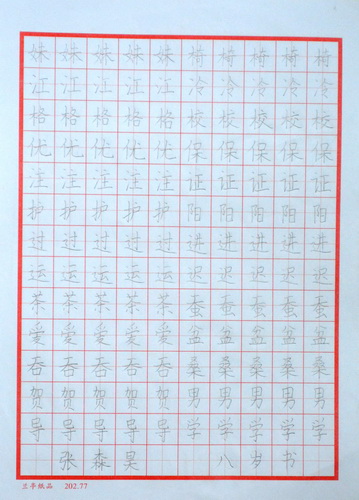 姝姝姝姝姝椅椅椅椅椅
江江江江江冷冷冷冷冷
格格格格格校校校校校
优优优优优保保保保保
注注注注注证证证证证
护护护护护阳阳阳阳阳
过过过过过进进进进进
运运运运运迟迟迟迟迟
茶茶茶茶茶蚕蚕蚕蚕蚕
爱爱爱爱爱盆盆盆盆盆
春春春春春桑桑桑桑桑
贺贺贺贺贺男男男男男
导导导导导学学学学学
张森昊 八岁书
兰亭纸品 202.77